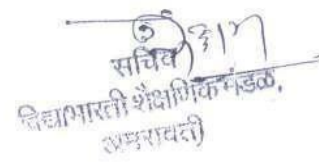 सचिव
विद्याभारती शैक्षणिक मंडळ,
अमरावती